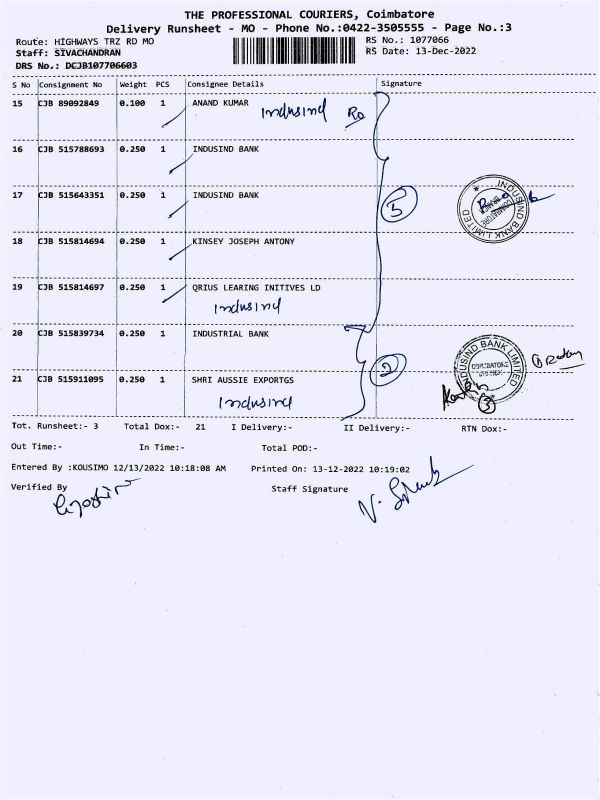 THE PROFESSIONAL COURIERS, Coimbatore
Delivery Runsheet - MO - Phone No.:0422-3505555 - Page No.:3
Route: HIGHWAYS TRZ RD MO RS No.: 1077066
Staff: SIVACHANDRAN RS Date: 13-Dec-2022
DRS No.: DCJB107706603
S No Consignment No Weight PCS Consignee Details Signature
15 CJB 89092849 0.100 1 ANAND KUMAR
Indusind Ro
16 CJB 515788693 0.250 1 INDUSIND BANK
17 CJB 515643351 0.250 1 INDUSIND BANK
5
INDUSIND BANK LIMITED
COIMBATORE
18 CJB 515814694 0.250 1 KINSEY JOSEPH ANTONY
19 CJB 515814697 0.250 1 QRIUS LEARING INITIVES LD
Indusind
20 CJB 515839734 0.250 1 INDUSTRIAL BANK
2
INDUSIND BANK LIMITED
COIMBATORE
21 CJB 515911095 0.250 1 SHRI AUSSIE EXPORTGS
Indusind
3
Tot. Runsheet:- 3 Total Dox:- 21 I Delivery:- II Delivery:- RTN Dox:-
Out Time:- In Time:- Total POD:-
Entered By :KOUSIMO 12/13/2022 10:18:08 AM Printed On: 13-12-2022 10:19:02
Verified By Staff Signature